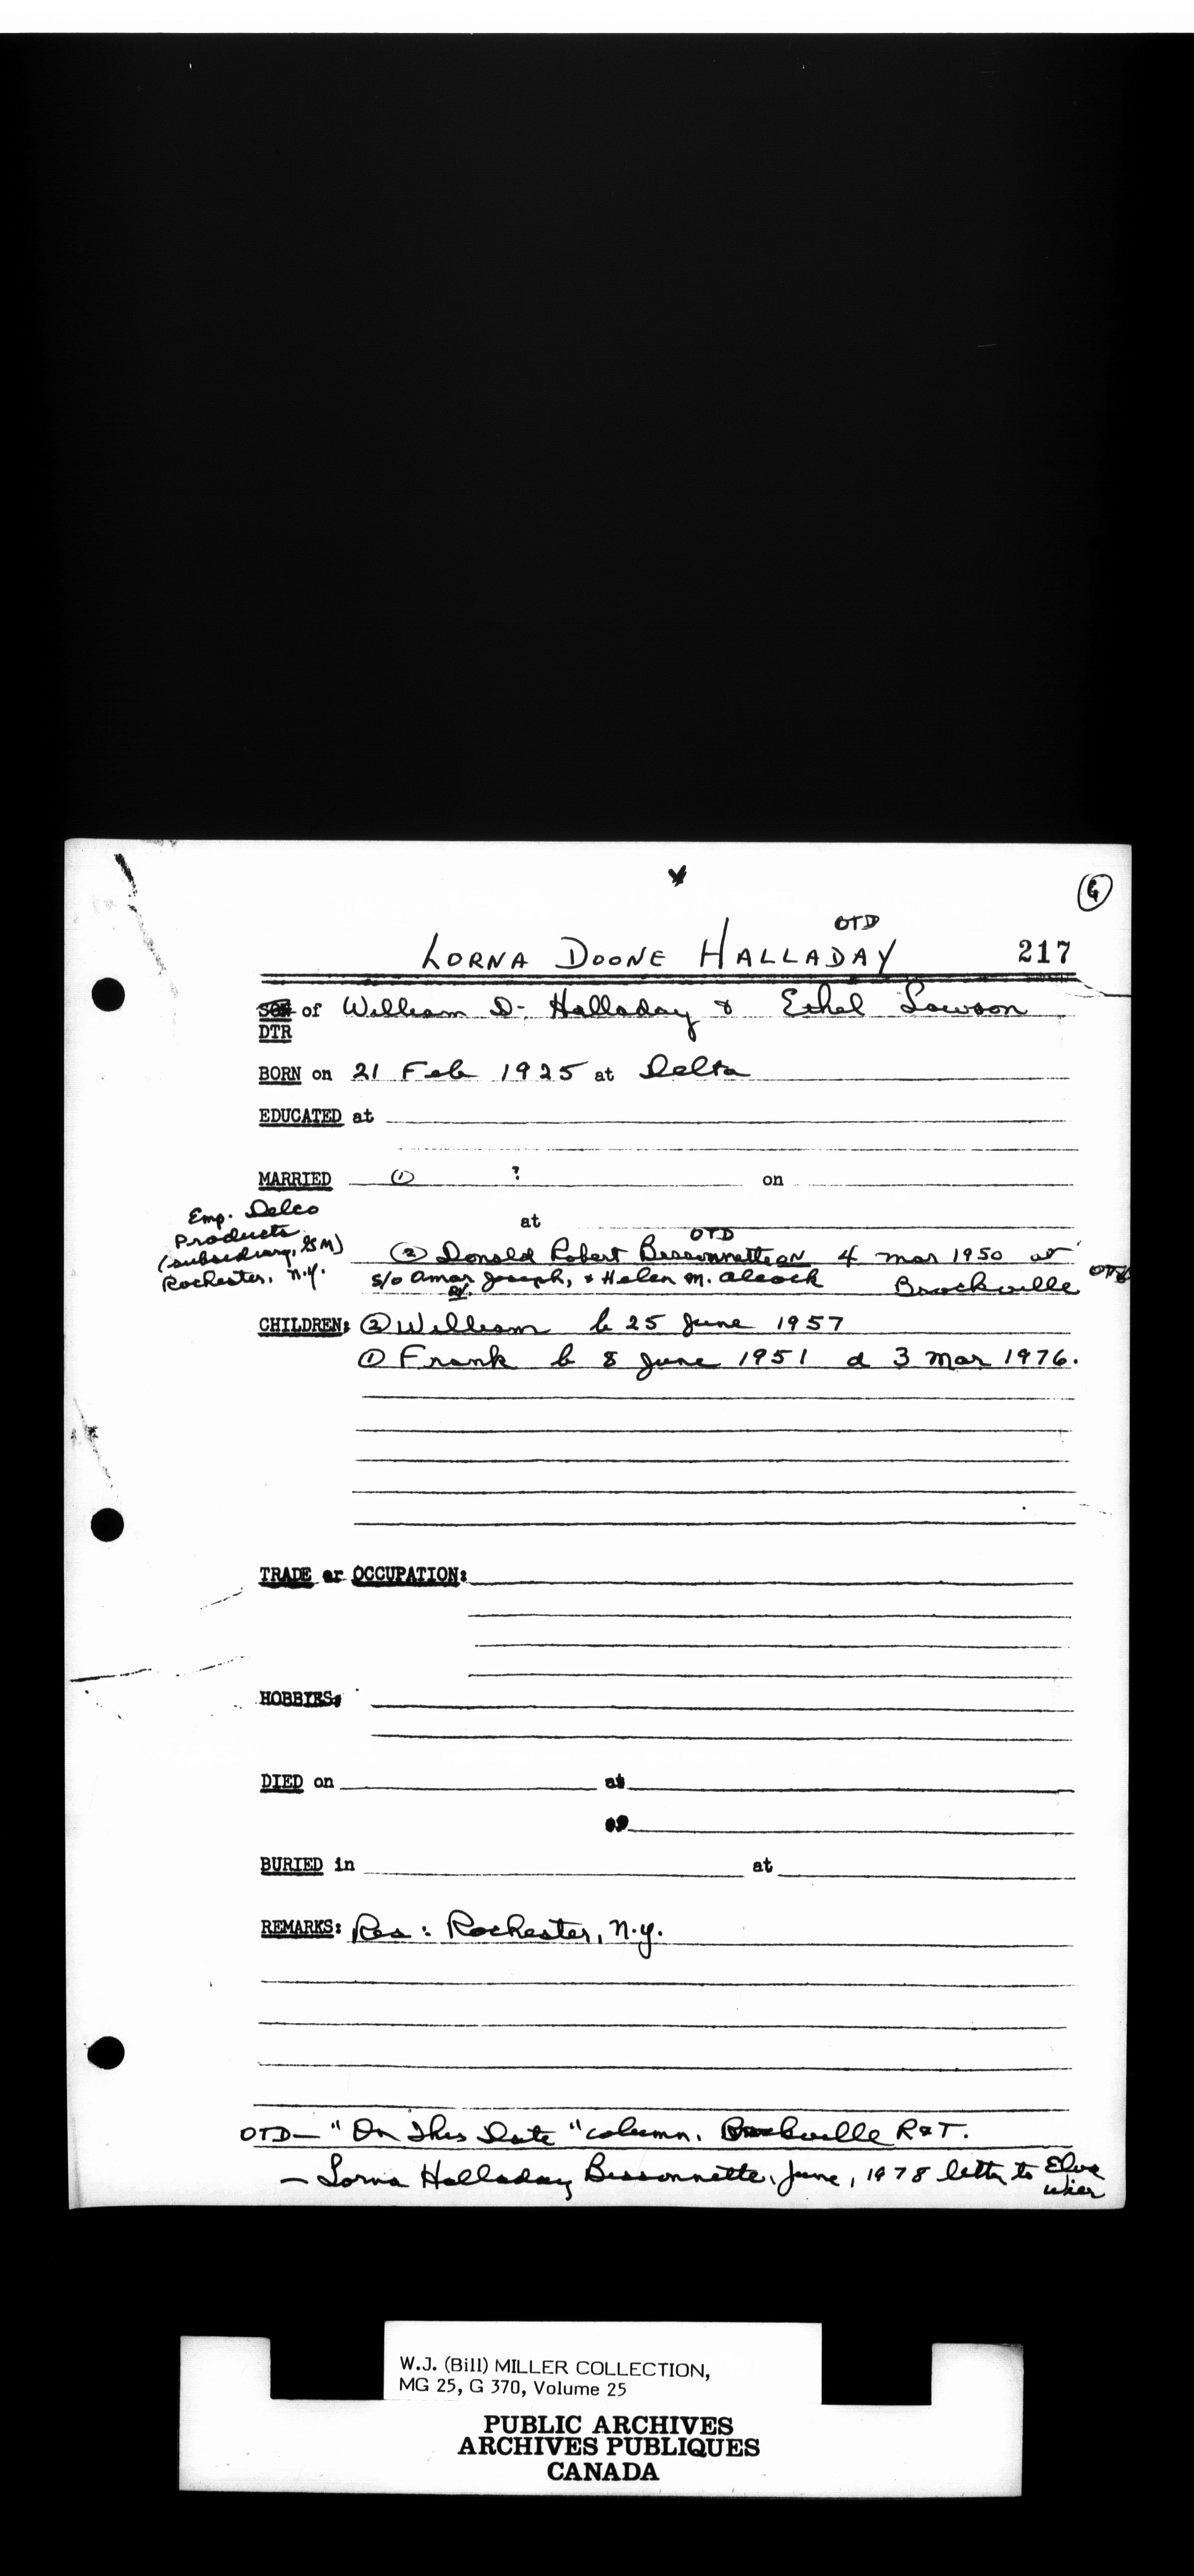 G
OTD
LORNA DOONE HALLADAY 217
SON of William D. Halladay & Ethel Lawson
DTR
BORN on 21 Feb 1925 at Delta
EDUCATED at
MARRIED ① ? on
at
Emp. Delco
Products
(subsidiary, GM)
Rochester, N.Y.
OTD
② Donald Robert Bessonnette ON 4 Mar 1950 at
s/o Omar Joseph, & Helen M. Alcock Brockville OTD
CHILDREN: ② William b 25 June 1957
① Frank b 8 June 1951 d 3 Mar 1976.
TRADE or OCCUPATION:
HOBBIES:
DIED on at
BURIED in at
REMARKS: Res: Rochester, N.Y.
OTD— "On This Date" column. Brockville R&T.
— Lorna Halladay Bessonnette, June, 1978 letter to
W.J. (Bill) MILLER COLLECTION,
MG 25, G 370, Volume 25
PUBLIC ARCHIVES
ARCHIVES PUBLIQUES
CANADA